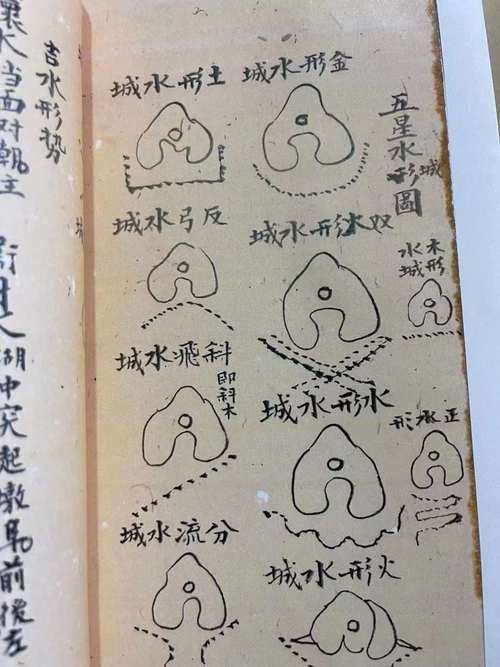 五星水形城圖
金形水城
土形水城
木形
水城
双木形水城
反弓水城
斜飛水城
即斜木
水形水城
分流水城
火形水城
吉水形势
水当面对朝主
湖中突起墩阜前後左